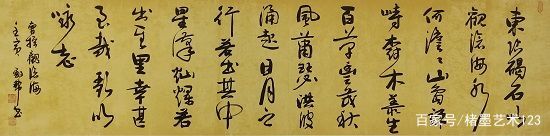 東臨碣石以
觀滄海水
何澹澹山島竦
峙樹木叢生
百草豐茂秋
風蕭瑟洪波
涌起日月之
行若出其中
星漢燦爛若
出其里幸甚
至哉歌以
詠志
曹操觀滄海
百家号/楮墨艺术123